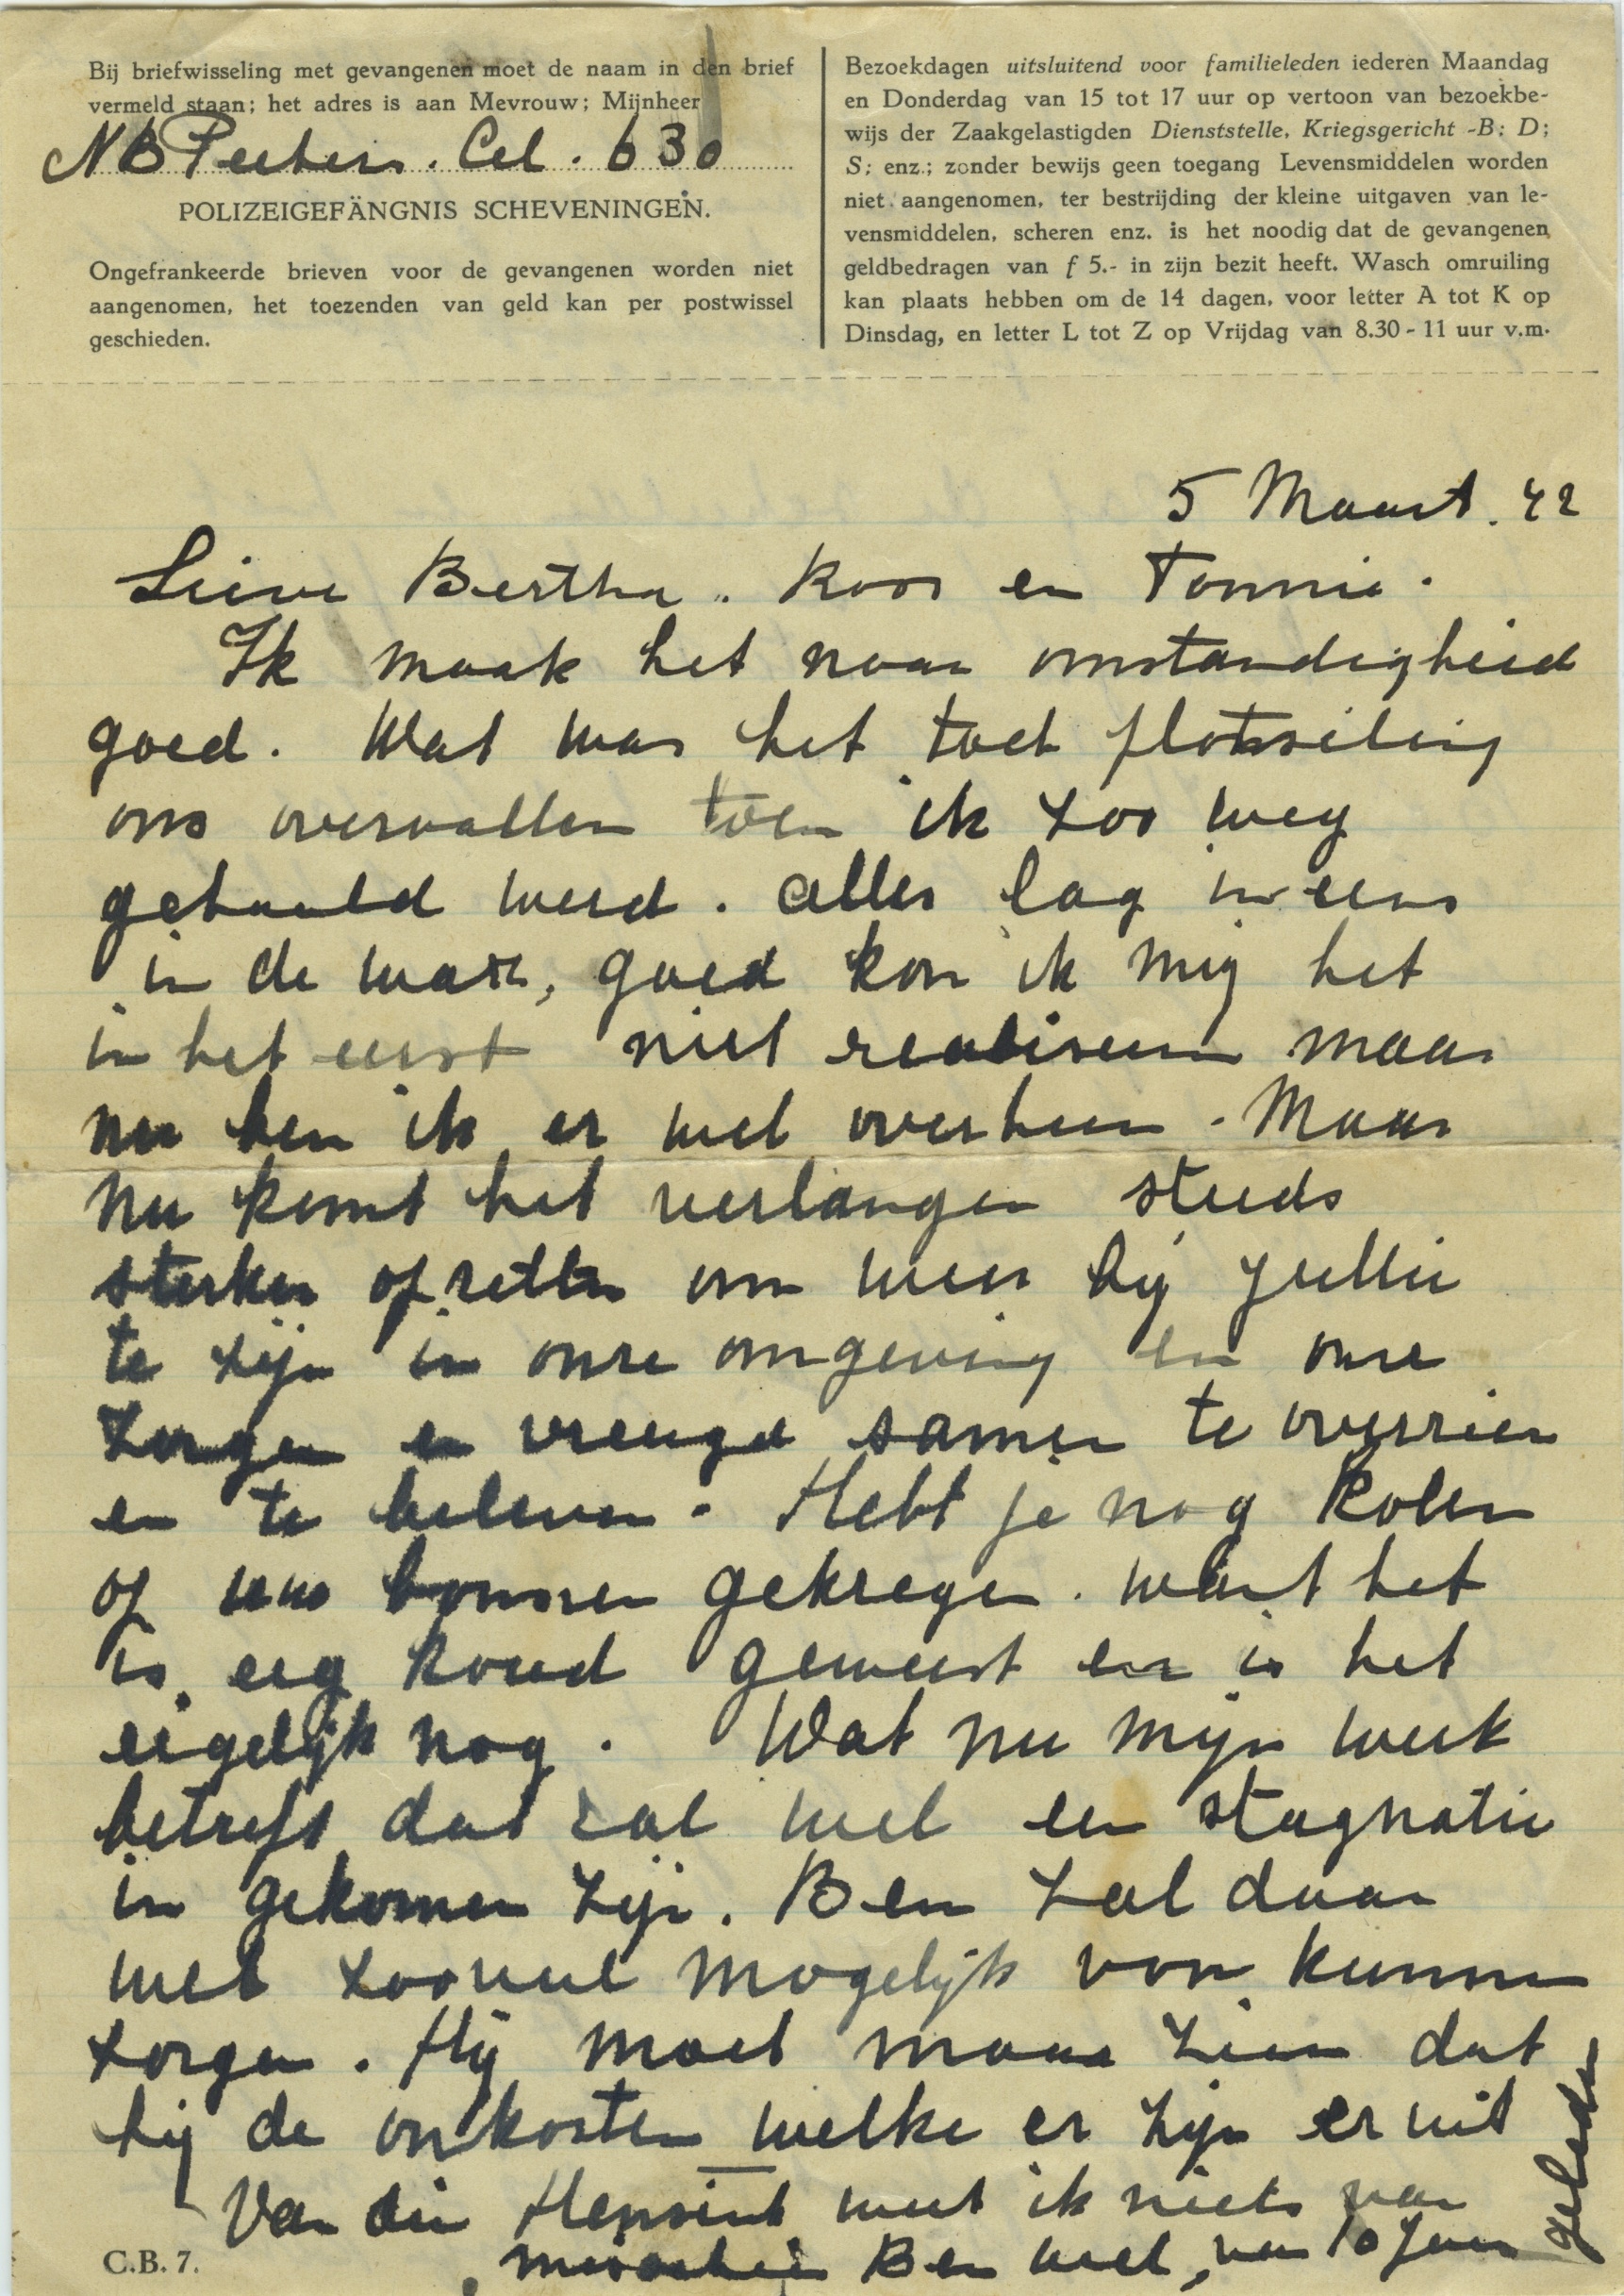 Bij briefwisseling met gevangenen moet de naam in den brief
vermeld staan; het adres is aan Mevrouw; Mijnheer
NB Peeters. Cel. 630
POLIZEIGEFÄNGNIS SCHEVENINGEN.
Ongefrankeerde brieven voor de gevangenen worden niet
aangenomen, het toezenden van geld kan per postwissel
geschieden.
Bezoekdagen uitsluitend voor familieleden iederen Maandag
en Donderdag van 15 tot 17 uur op vertoon van bezoekbe-
wijs der Zaakgelastigden Dienststelle, Kriegsgericht -B: D;
S; enz.; zonder bewijs geen toegang Levensmiddelen worden
niet aangenomen, ter bestrijding der kleine uitgaven van le-
vensmiddelen, scheren enz. is het noodig dat de gevangenen
geldbedragen van f 5.- in zijn bezit heeft. Wasch omruiling
kan plaats hebben om de 14 dagen, voor letter A tot K op
Dinsdag, en letter L tot Z op Vrijdag van 8.30 - 11 uur v.m.
5 Maart. 42
Lieve Bertha. Koos en Tonnie.
Ik maak het naar omstandigheid
goed. Wat was het toch plotseling
ons overvallen toen ik zoo weg
gehaald werd. alles lag ineens
in de war, goed kon ik mij het
in het eerst niet realiseren maar
nu ben ik er wel overheen. Maar
nu komt het verlangen steeds
sterker opzetten om weer bij jullie
te zijn in onze omgeving en onze
zorgen en vreugde samen te overzien
en te beleven. Hebt je nog kolen
of uw bonnen gekregen. want het
is erg koud geweest en is het
eigelijk nog. Wat nu mijn werk
betreft dat zal wel een stagnatie
in gekomen zijn. Ben zal daar
wel zooveel mogelijk voor kunnen
zorgen. Hij moet maar zien dat
hij de onkosten welke er zijn er uit
Van die weet ik niets van
misschien Ben wel, van 10 Jaar
geleden
C.B. 7.